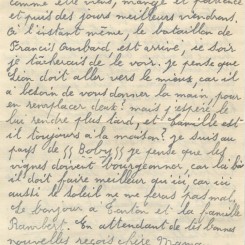 comme être vieux, mangé et patience
et puis des jours meilleurs viendront.
A l'instant même, le bataillon de
Francis Ambard est arrivé, ce soir
je tâcherais de le voir. je pense que
Lien doit aller vers le mieux, car il
a besoin de vous donner la main, pour
en remplacer deux! mais j'espère le
lui rendre plus tard, et Camille est
il toujours à la maison? je suis au
pays de "Boby" je pense que les
vignes doivent bourgeonner car là bas
il doit faire meilleur qu'ici, car ici
aussi le soleil ne me ferais pas mal,
Le bonjour à Tonton et la famille
Rambert. En attendant de tes bonnes
nouvelles reçois chère Maman